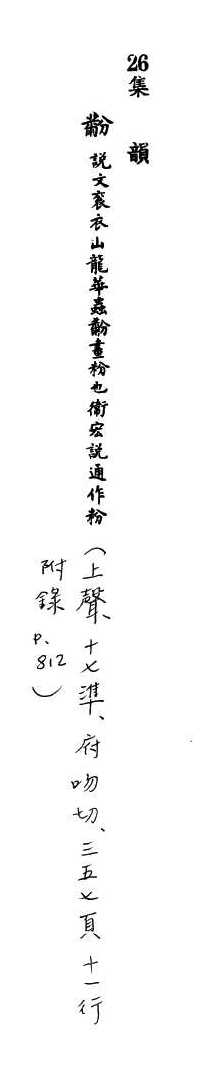 26集韻
黺 說文袞衣山龍華蟲黺畫粉也衛宏說通作粉
(上聲、十七準、府吻切、三五七頁十一行
附錄 p.812)